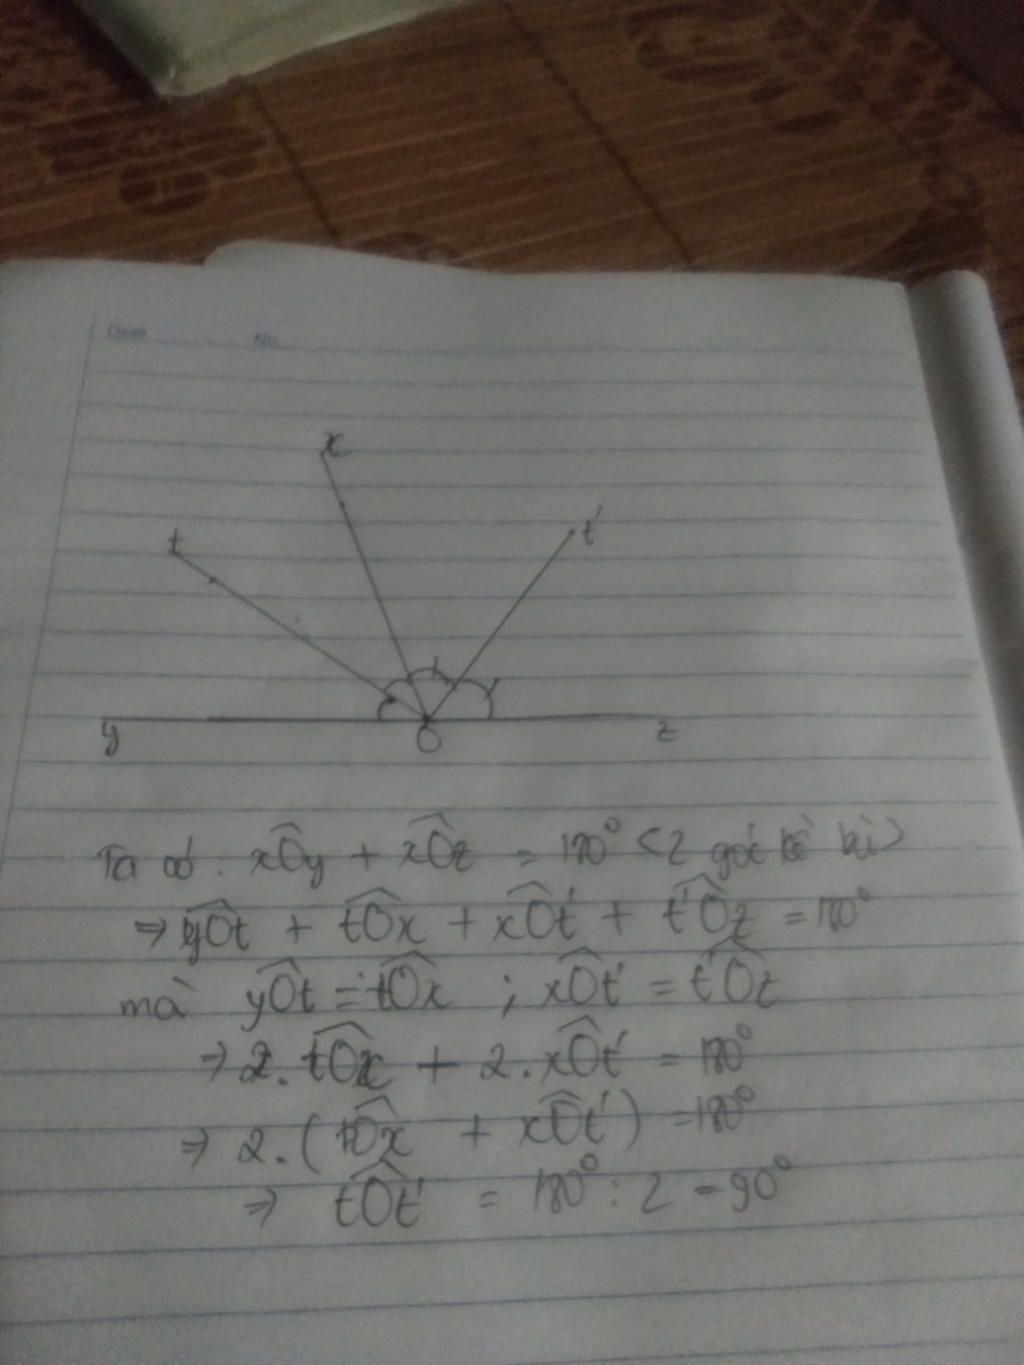 Date No
x
t
t'
y
O
z
Ta có: xÔy + xÔz = 180° (2 góc kề bù)
⇒ yÔt + tÔx + xÔt' + t'Ôz = 180°
mà yÔt = tÔx ; xÔt' = t'Ôz
⇒ 2. tÔx + 2. xÔt' = 180°
⇒ 2. (tÔx + xÔt') = 180°
⇒ tÔt' = 180° : 2 = 90°